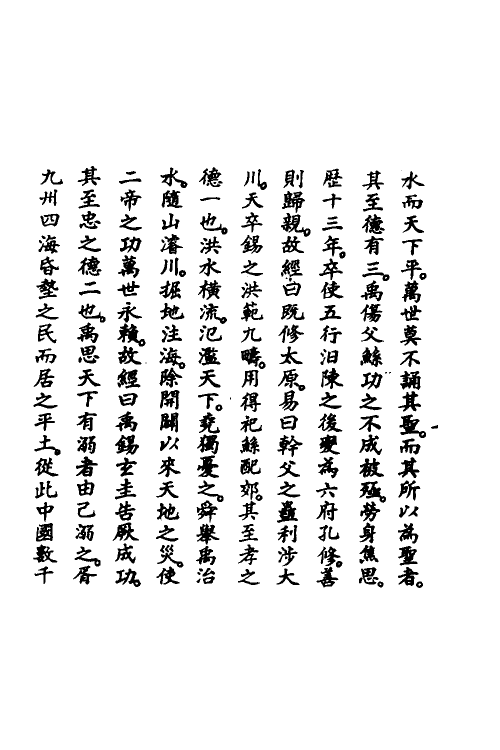 水而天下平。萬世莫不誦其聖。而其所以為聖者。
其至德有三。禹傷父鯀功之不成被殛。勞身焦思。
歴十三年。卒使五行汩陳之後變為六府孔修。善
則歸親。故經曰既修太原。易曰幹父之蠱利涉大
川。天卒錫之洪範九疇。用得祀鯀配郊。其至孝之
德一也。洪水橫流。氾濫天下。堯獨憂之。舜舉禹治
水。隨山濬川。掘地注海。除開闢以來天地之災。使
二帝之功萬世永賴。故經曰禹錫玄圭告厥成功。
其至忠之德二也。禹思天下有溺者由己溺之。胥
九州四海昏墊之民而居之平土。從此中國數千